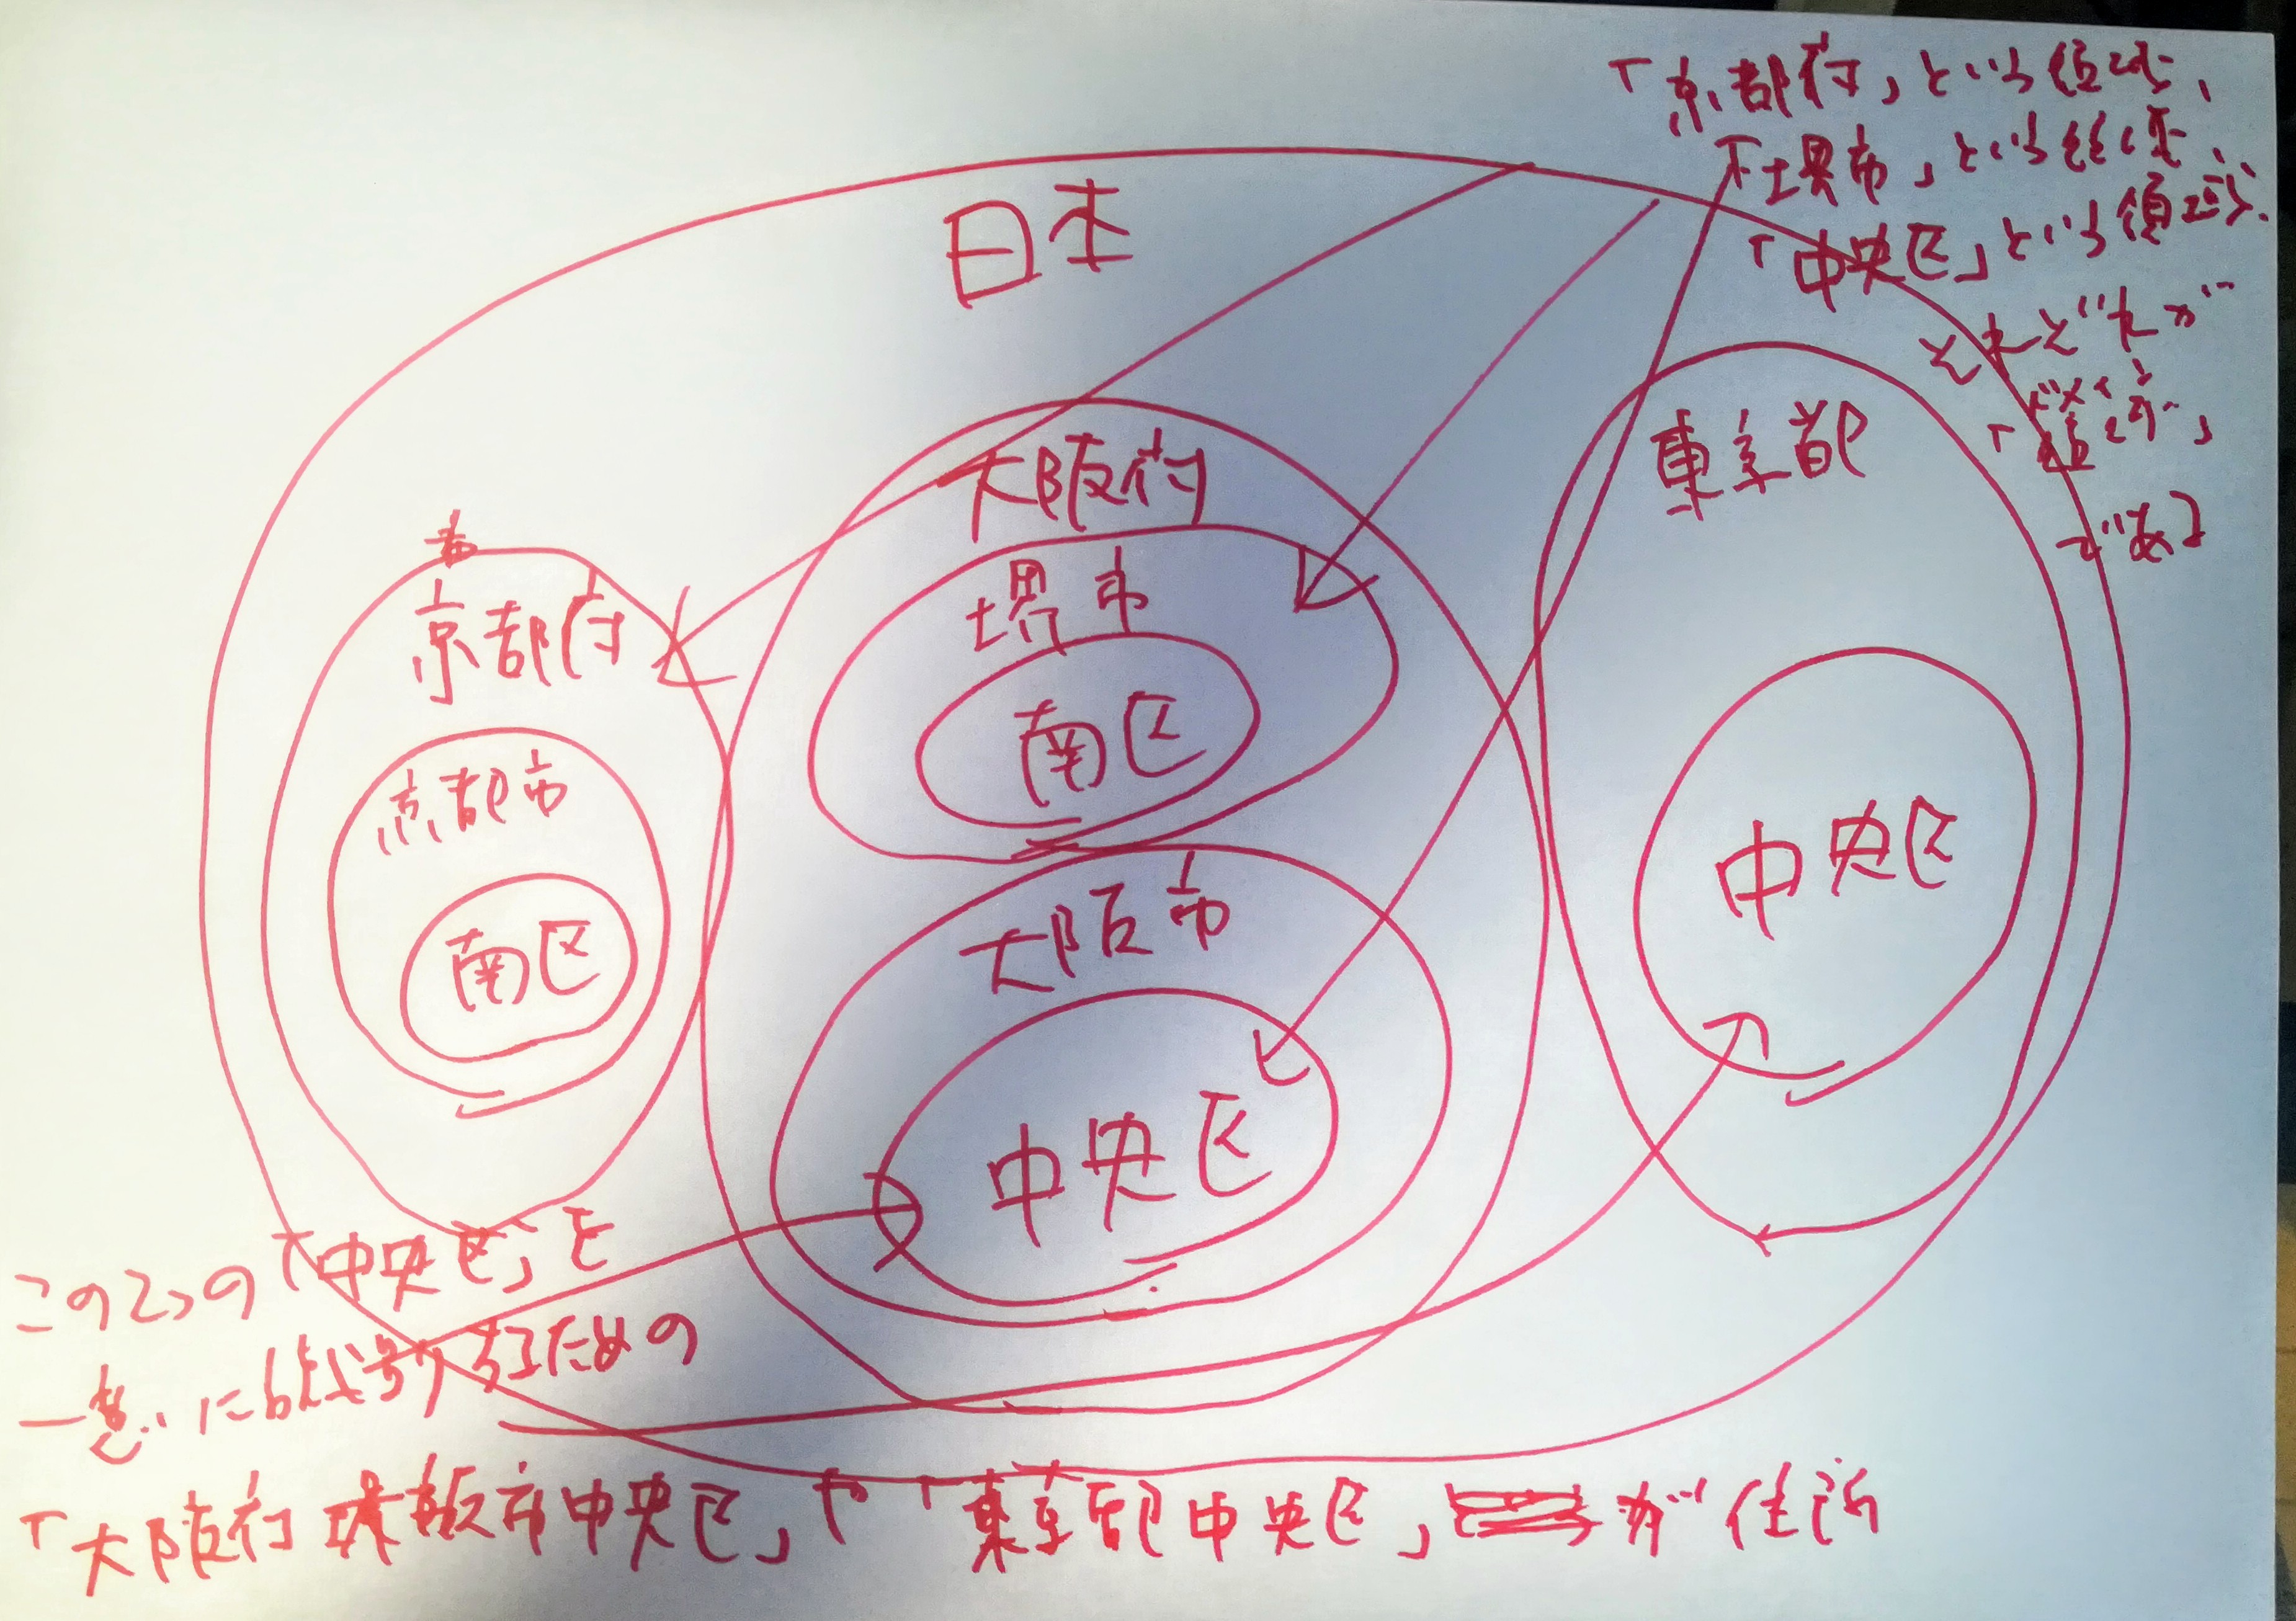 「京都府」という領域、
「堺市」という領域、
「中央区」という領域、
それぞれが
ドメイン
「
である
日本
大阪府
東京都
堺市
京都府
南区
京都市
中央区
大阪市
南区
中央区
この2つの「中央区」を
一意に するための
「大阪府大阪市中央区」や「東京都中央区」が住所